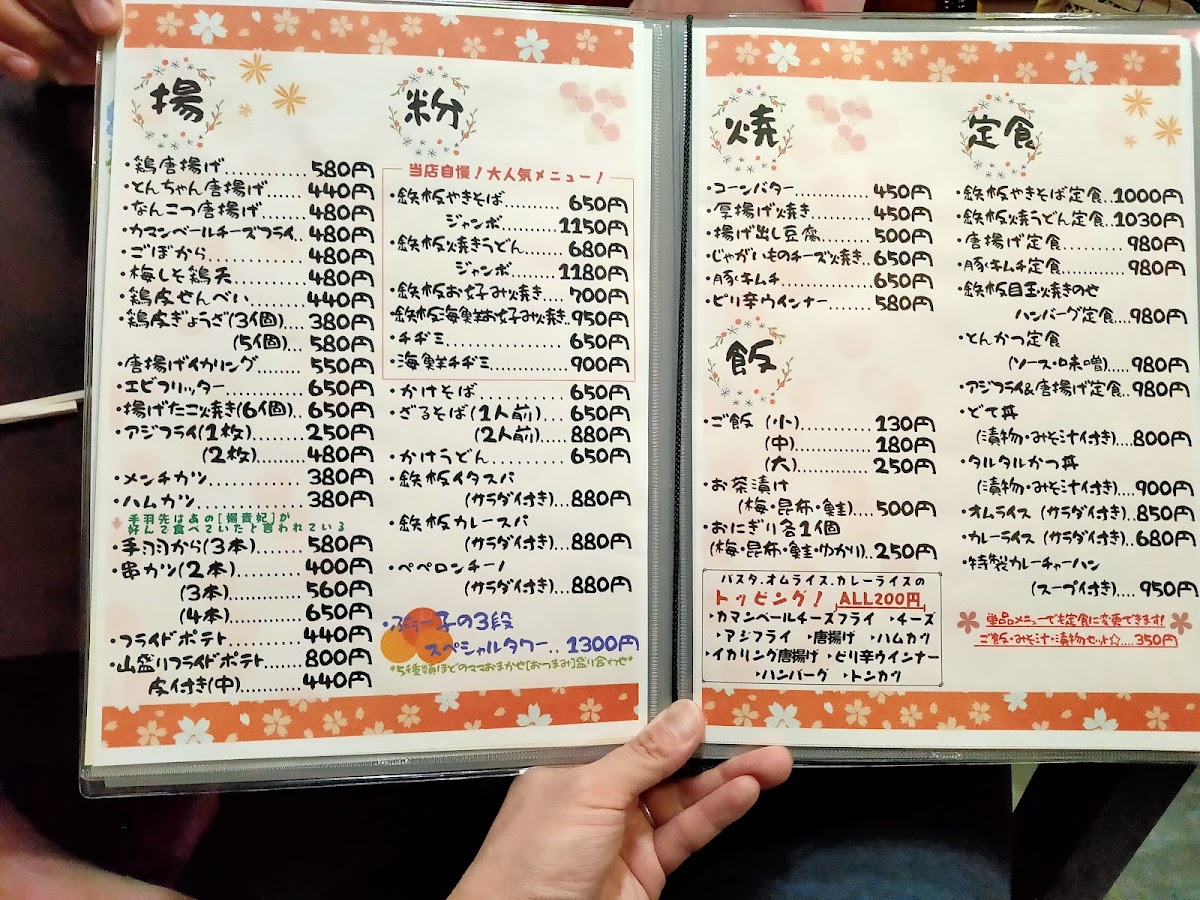 揚
・鶏唐揚げ..........580円
・とんちゃん唐揚げ....440円
・なんこつ唐揚げ......480円
・カマンベールチーズフライ..480円
・ごぼから..........480円
・梅しそ鶏天........480円
・鶏皮せんべい......440円
・鶏皮ぎょうざ(3個)....380円
(5個)...580円
・唐揚げイカリング......550円
・エビフリッター......650円
・揚げたこ焼き(6個)..650円
・アジフライ(1枚)......250円
(2枚)......480円
・メンチカツ..........380円
・ハムカツ..........380円
手羽先はあの[楊貴妃]が
好んで食べていたと言われている
・手羽から(3本)......580円
・串カツ(2本)........400円
(3本)........560円
(4本)........650円
・フライドポテト......440円
・山盛りフライドポテト....800円
皮付き(中)..........440円
粉
当店自慢!大人気メニュー!
・鉄板やきそば........650円
ジャンボ......1150円
・鉄板焼きうどん......680円
ジャンボ......1180円
・鉄板お好み焼き......700円
・鉄板海鮮お好み焼き..950円
・チヂミ............650円
・海鮮チヂミ..........900円
・かけそば..........650円
・ざるそば(1人前)....650円
(2人前)....880円
・かけうどん..........650円
・鉄板イタスパ
(サラダ付き)...880円
・鉄板カレースパ
(サラダ付き)...880円
・ペペロンチーノ
(サラダ付き)...880円
スペシャルタワー..1300円
*5種類ほどのママおまかせ[おつまみ]盛り合わせ*
焼
・コーンバター........450円
・厚揚げ焼き........450円
・揚げ出し豆腐......500円
・じゃがいものチーズ焼き..650円
・豚キムチ..........650円
・ピリ辛ウインナー......580円
飯
・ご飯 (小)........130円
(中)........180円
(大)........250円
・お茶漬け
(梅・昆布・鮭)....500円
・おにぎり各1個
(梅・昆布・鮭・ゆかり)..250円
パスタ.オムライス.カレーライスの
トッピング! ALL200円
▸カマンベールチーズフライ ▸チーズ
▸アジフライ ▸唐揚げ ▸ハムカツ
▸イカリング唐揚げ ▸ピリ辛ウインナー
▸ハンバーグ ▸トンカツ
定食
・鉄板やきそば定食..1000円
・鉄板焼うどん定食..1030円
・唐揚げ定食........980円
・豚キムチ定食........980円
・鉄板目玉焼きのせ
ハンバーグ定食...980円
・とんかつ定食
(ソース・味噌)...980円
・アジフライ&唐揚げ定食..980円
・どて丼
(漬物・みそ汁付き)...800円
・タルタルかつ丼
(漬物・みそ汁付き)...900円
・オムライス (サラダ付き)..850円
・カレーライス (サラダ付き)..680円
・特製カレーチャーハン
(スープ付き)....950円
単品メニューでも定食に変更できます!
ご飯・みそ汁・漬物セット☆....350円